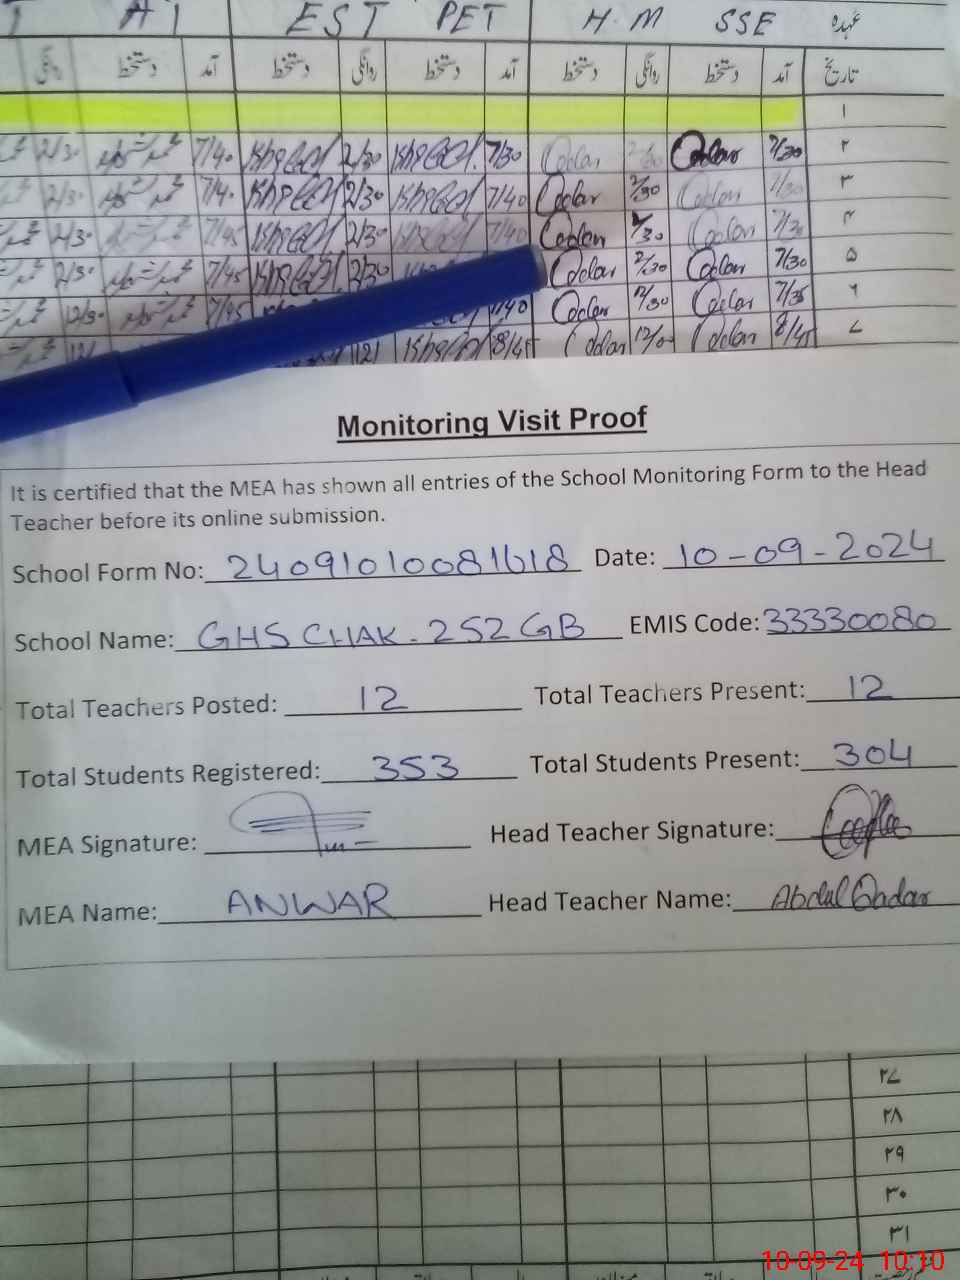 H I EST PET H.M SSE عہدہ
روانگی دستخط آمد دستخط روانگی دستخط آمد دستخط روانگی دستخط آمد تاریخ
۱
2/30 7/40 2/30 7/30 Qadar 2/30 Qadar 7/30 ۲
2/30 7/40 2/30 7/40 Qadar 2/30 Qadar 7/30 ۳
2/30 7/45 2/30 7/40 Qadar 2/30 Qadar 7/30 ۴
2/30 7/45 2/30 Qadar 2/30 Qadar 7/30 ۵
12/30 7/45 Qadar 12/30 Qadar 7/35 ۶
8/45 Qadar 12/00 Qadar 8/45 ۷
Monitoring Visit Proof
It is certified that the MEA has shown all entries of the School Monitoring Form to the Head
Teacher before its online submission.
School Form No: 24091010081618 Date: 10-09-2024
School Name: GHS CHAK-252 GB EMIS Code: 33330080
Total Teachers Posted: 12 Total Teachers Present: 12
Total Students Registered: 353 Total Students Present: 304
MEA Signature: Head Teacher Signature:
MEA Name: ANWAR Head Teacher Name: Abdul Qadar
۲۷
۲۸
۲۹
۳۰
۳۱
10-09-24 10:10